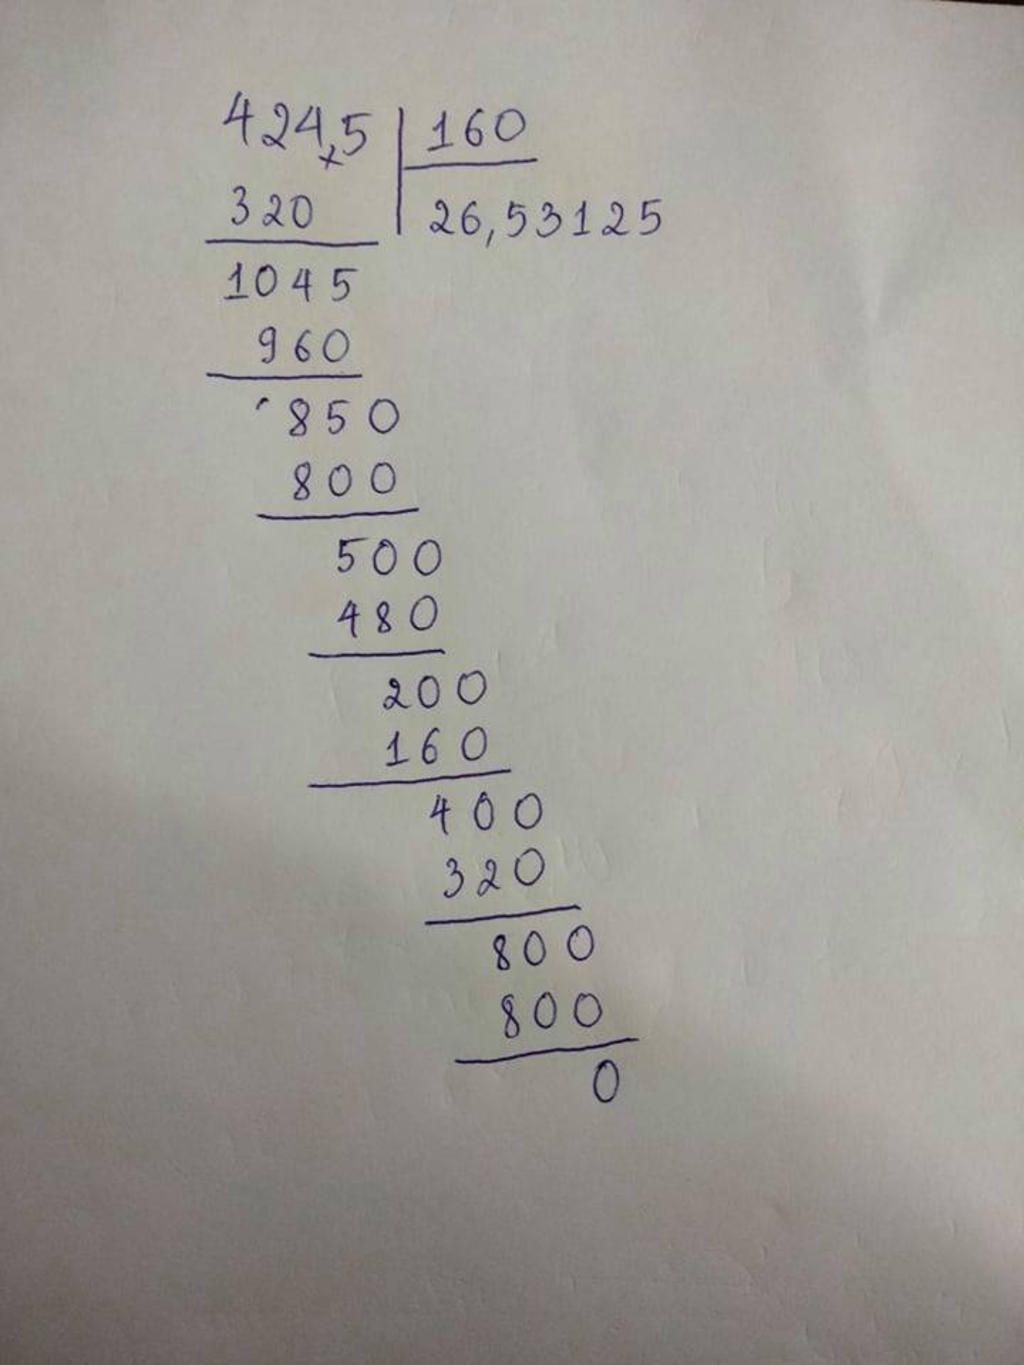 424,5 160
320 26,53125
1045
960
850
800
500
480
200
160
400
320
800
800
0